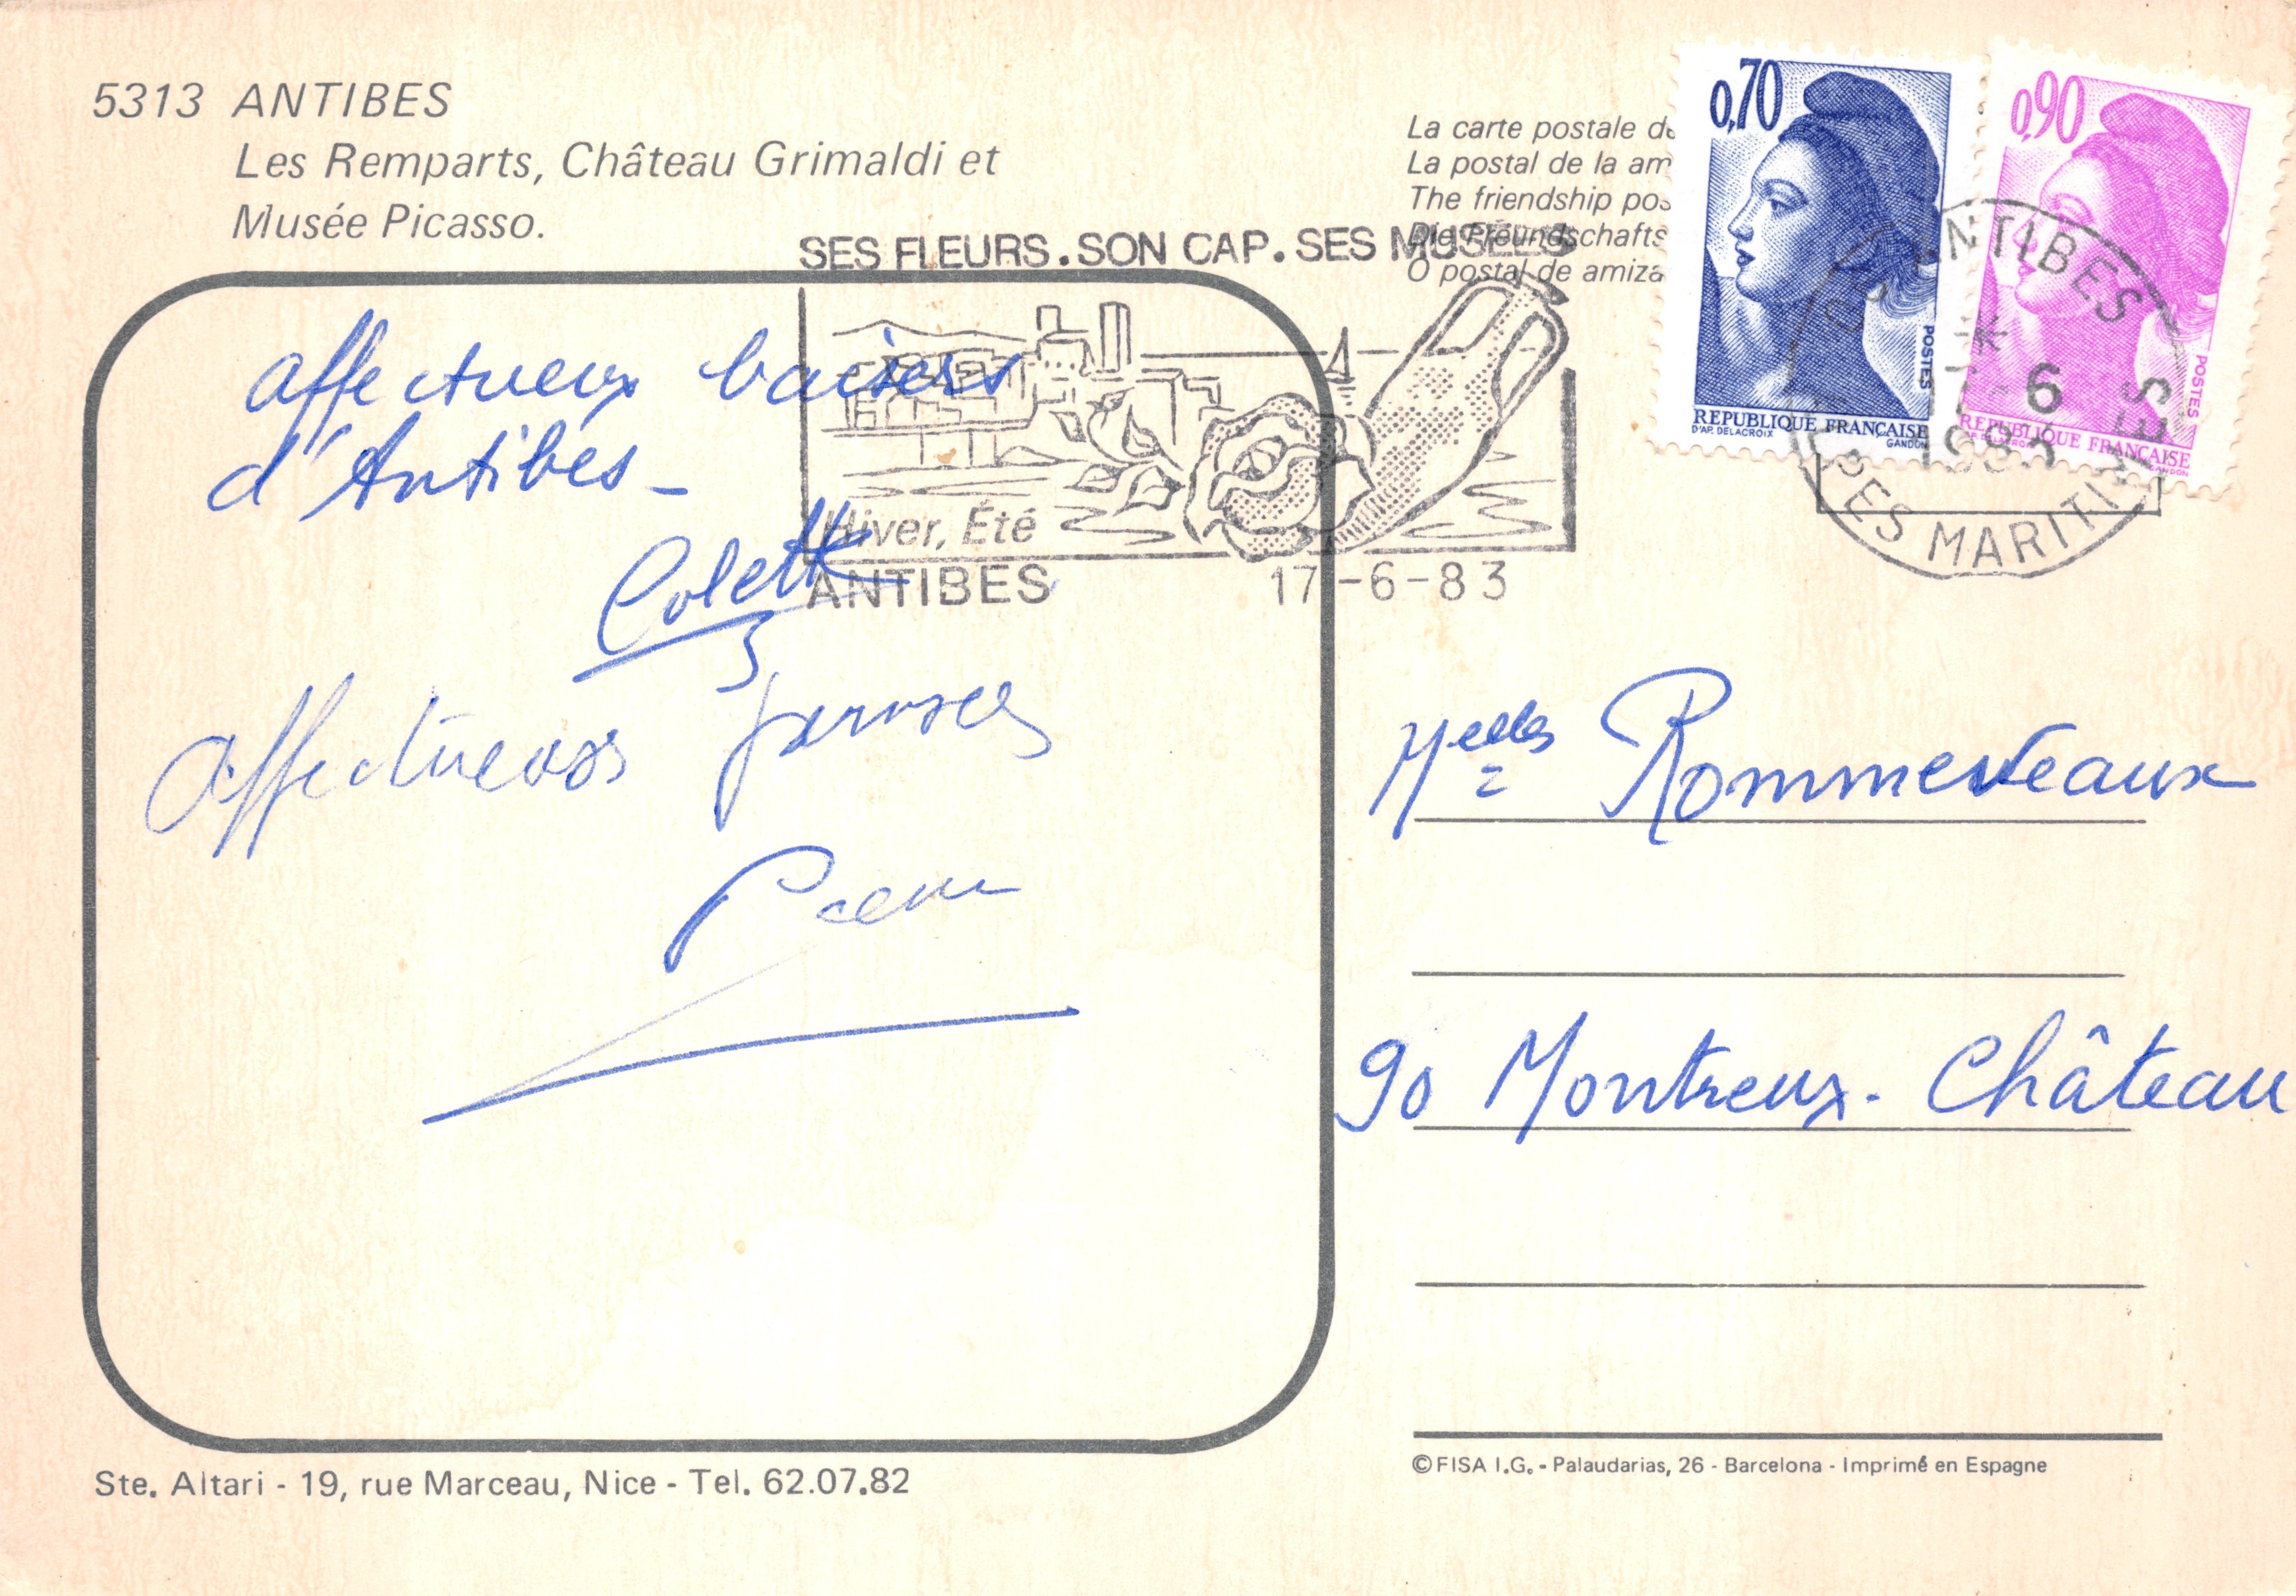 5313 ANTIBES
Les Remparts, Château Grimaldi et
Musée Picasso.
La carte postale de
La postal de la am
The friendship pos
Die Freundschafts
O postal de amiza
0,70
POSTES
REPUBLIQUE FRANÇAISE
D'AP. DELACROIX
GANDON
0,90
POSTES
REPUBLIQUE FRANÇAISE
D'AP. DELACROIX
GANDON
ANTIBES
6
1983
ALPES MARITIMES
SES FLEURS. SON CAP. SES MUSÉES
Hiver, Été
ANTIBES
17-6-83
affectueux baisers
d'Antibes -
Colette
Affectueuses
Melles Rommeveaux
90 Montreux-Château
Ste. Altari - 19, rue Marceau, Nice - Tel. 62.07.82
© FISA I.G. - Palaudarias, 26 - Barcelona - Imprimé en Espagne